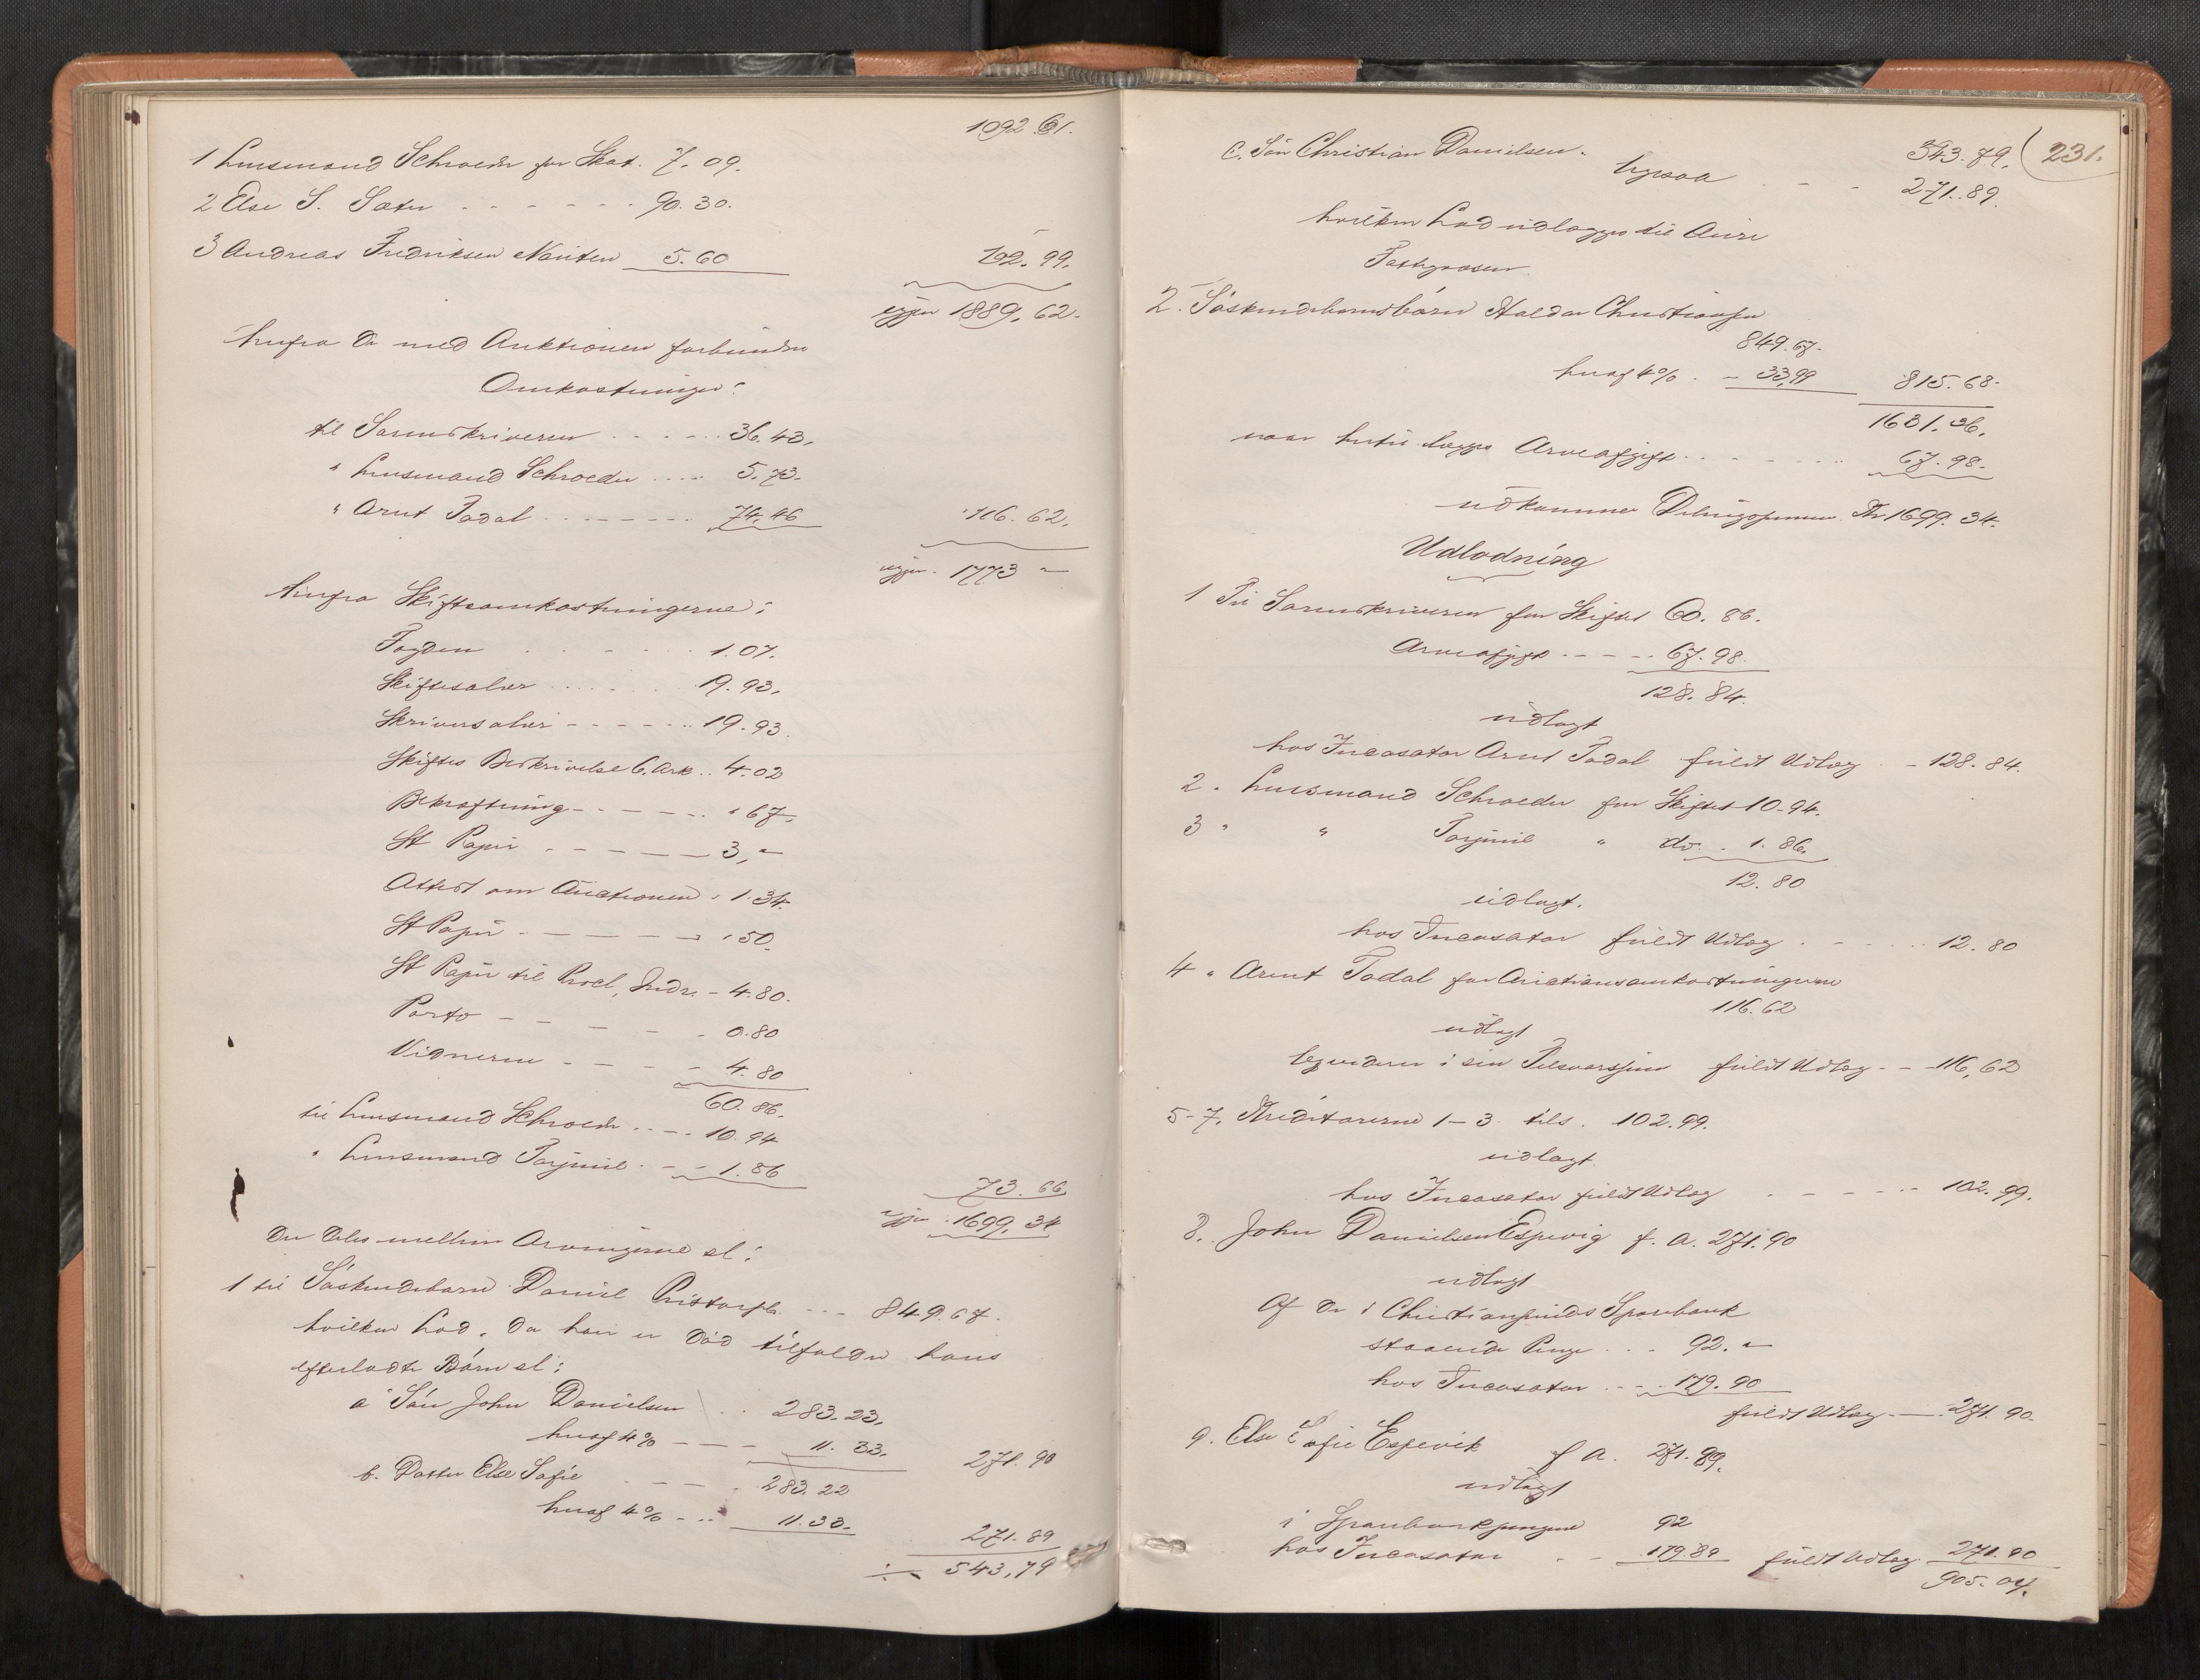 1092.61.
1 Lensmand Schroeder for Skat. 7.09.
2 Else S. Sæter - - - - - - 90.30.
3 Andreas Fredriksen Nausten 5.60
102.99.
igjen 1889.62.
herfra de med Auktionen forbundne
Omkostninger:
til Sorenskriveren - - - - 36.43.
" Lensmand Schroeder .... 5.73.
" Arnt Todal - - - - - - 74.46
116.62.
igjen. 1773 "
herfra Skifteomkostningerne:
Fogden - - - 1.07.
Skiftesalær - - - 19.93.
Skriversalær - - - 19.93.
Skiftes Beskrivelse 6 Ark .. 4.02
Bekræftning - - - - " 67.
St Papir - - - - 3,"
Attest om Auctionen " 1.34.
St Papir - - - - " 50.
St Papir til Procl, Indr. - 4.80.
Porto - - - - - 0.80
Vidnerne - - - - 4.80
60.86.
til Lensmand Schroeder . - - . 10.94
" Lensmand - - 1.86
73.66
igjen . 1699.34
Der deles mellem Arvingerne sl:
1 til Søskendebarn Daniel - - - 849.67.
hvilken Lod, da han er død tilfalder hans
efterladte Børn sl:
a Søn John Danielsen . . 283.23.
heraf 4% - - - 11.33.
271.90
b. Datter Else Sofie - - - 283.22
heraf 4% - .. 11.33.
271.89
÷ 543,79
231.
c. Søn Christian Danielsen.
543.79.
ligesaa - - - 271.89.
hvilken Lod udlægges til Aure
Fattigvæsen.
2. Søskendebarnsbarn Halder Christiansen
849.67.
heraf 4% . - 33,99 815.68.
1631.36.
naar hertil lægges Arveafgift - - - - - 67.98.
udkommer Delingssummen Kr 1699.34.
Udlodning
1 Til Sorenskriveren for Skiftet 60.86.
Arveafgift - - - - 67.98.
128.84.
udlagt
hos Incasator Arnt Todal fuldt Udlæg . - 128.84.
2 " Lensmand Schroeder for Skiftet 10.94.
3 " " " do. . 1.86.
12.80
udlagt.
hos Incasator fuldt Udlæg . - - - - 12.80
4 " Arnt Todal for Auctionsomkostningerne
116.62
udlagt
liqviderer i sin fuldt Udlæg - - 116,62
5-7. Kreditorerne 1-3. tils. 102.99.
udlagt
hos Incasator fuldt Udlæg . - - - - - 102.99.
8. John Danielsen Espevig f. A. 271.90
udlagt
Af de i Christiansunds Sparebank
staaende Penge . . . 92. "
hos Incasator - - - 179.90
fuldt Udlæg - - 271.90.
9. Else Sofie Espevik f A. 271.89.
udlagt
i Sparebankpengene 92
hos Incasator . - 179.89 fuldt Udlæg 271.90
905.04.